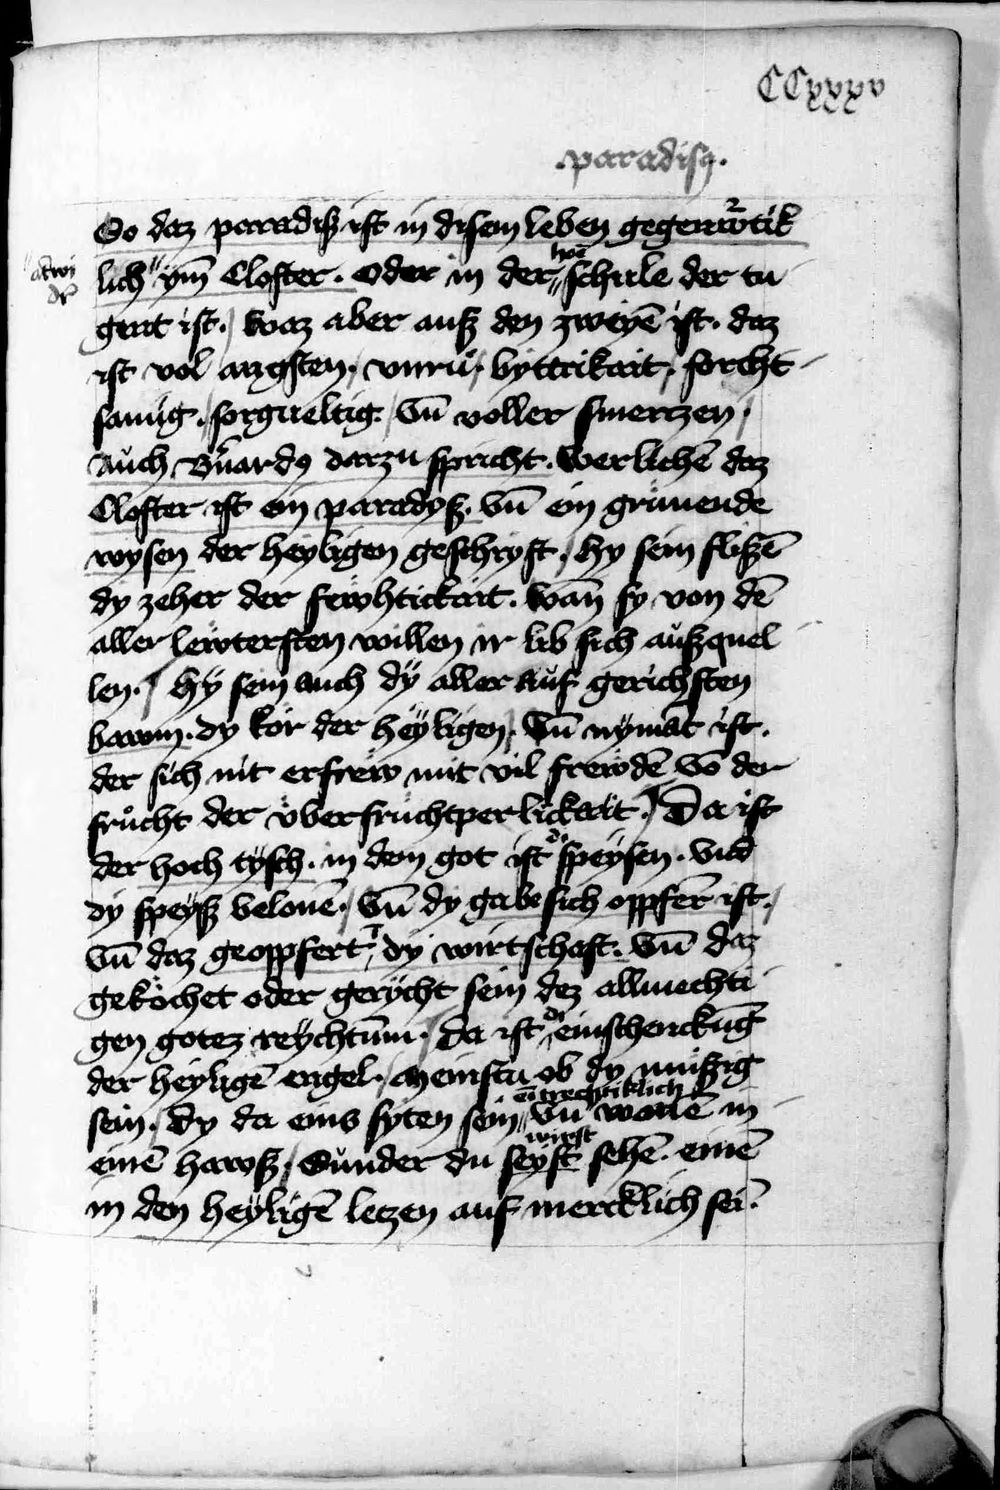 CCxxxv
.paradisꝯ.
So daz paradiß ist in disem leben gegenwͦtik
lich ym̄ Closter. Oder in der schule der tu
gent ist. waz aber auß den zweyē ist. daz
ist vol angsten. vnru. bytterkait. forcht
samig. sorgueltig. Vn̄ voller smerczen.
Auch Bn̄ardꝯ darzu spricht. Werlichē daz
Closter ist ein paradyß. Vn̄ ein grunende
wysen der heyligen geschryft. Hy sein flißē
dy zeher der fewhtickait. Wan̄ sy von dē
aller lewtersten willen ir lib sich außquel
len. Hÿ sein auch dÿ aller auf gerichsten
bawm. dy kör der heÿligen. Vn̄ nÿmāt ist.
der sich nit erfrew mit vil frewdē Vō der
frücht der vberfruchtperlickait. Da ist
der hoch tÿsch. in dem got ist speÿsen. vnd
dÿ speÿß belonē. Vn̄ dÿ gabe sich oppfer̄ ist.
Vn̄ daz geoppfert, dÿ wirtschaft. Vn̄ daz
geköchet oder gerÿcht sein dez allmechti
gen gotez reÿchtum. Da ist einschenckūg
der heyligē engel. Meinstu ob dy mußig
ein̄trechtiklich
sein. Dy da eins syten sein Vn̄ wonē in
wirst
einē hawß. Sunder du seyst sehē. einē
in den heÿligē leczen auf mercklich sei.